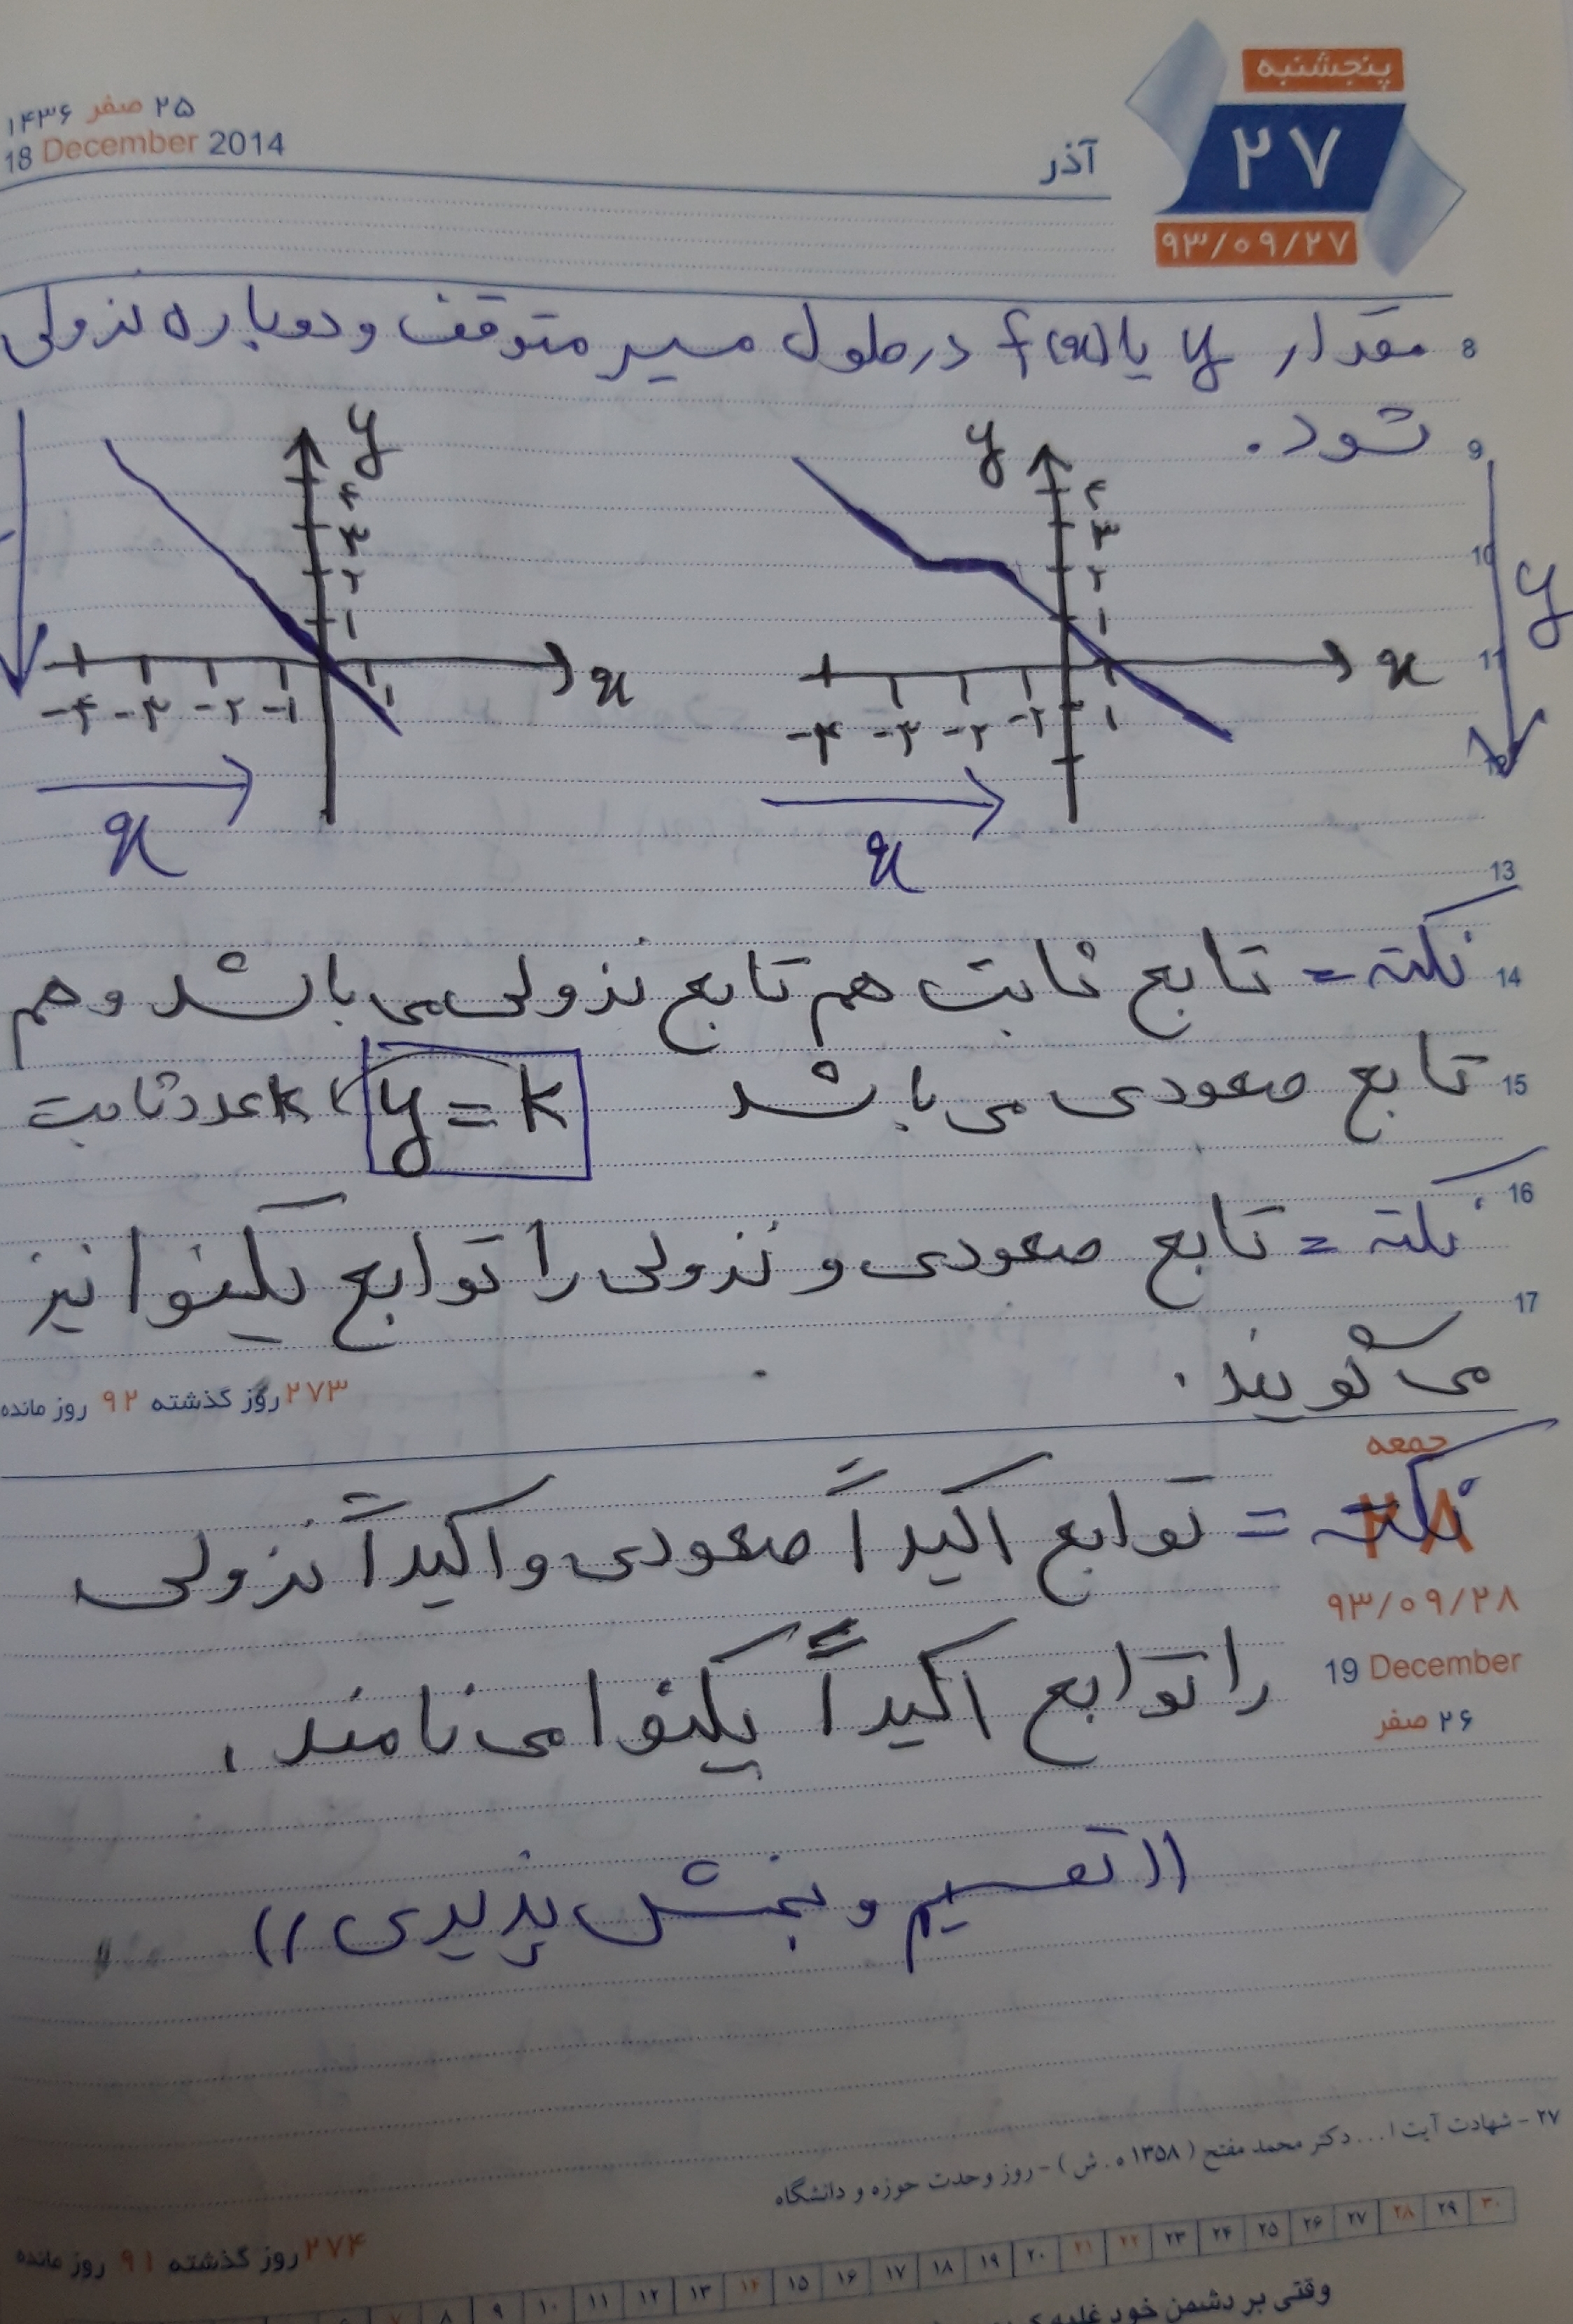 پنجشنبه
۲۷
آذر
۹۳/۰۹/۲۷
۲۵ صفر ۱۴۳۶
18 December 2014
8 مقدار y یا f(x) در طول مسیر متوقف و دوباره نزولی
9 شود.
y
۴
۳
۲
۱
x
-۴ -۳ -۲ -۱ ۱
x
y
۴
۳
۲
۱
x
-۴ -۳ -۲ -۲ ۱
x
y
10
11
12
13
14 نکته = تابع ثابت هم تابع نزولی می باشد و هم
15 تابع صعودی می باشد y = k ، k عدد ثابت
16 نکته = تابع صعودی و نزولی را توابع یکنوا نیز
17
می گویند.
۲۷۳ روز گذشته ۹۲ روز مانده
جمعه
۲۸
نکته = توابع اکیداً صعودی و اکیداً نزولی
۹۳/۰۹/۲۸
را توابع اکیداً یکنوا می نامند.
19 December
۲۶ صفر
((تقسیم و بخش پذیری))
۲۷ - شهادت آیت ا... دکتر محمد مفتح (۱۳۵۸ ه.ش) - روز وحدت حوزه و دانشگاه
۲۷۴ روز گذشته ۹۱ روز مانده
۷ ۸ ۹ ۱۰ ۱۱ ۱۲ ۱۳ ۱۴ ۱۵ ۱۶ ۱۷ ۱۸ ۱۹ ۲۰ ۲۱ ۲۲ ۲۳ ۲۴ ۲۵ ۲۶ ۲۷ ۲۸ ۲۹ ۳۰
وقتی بر دشمن خود غلبه